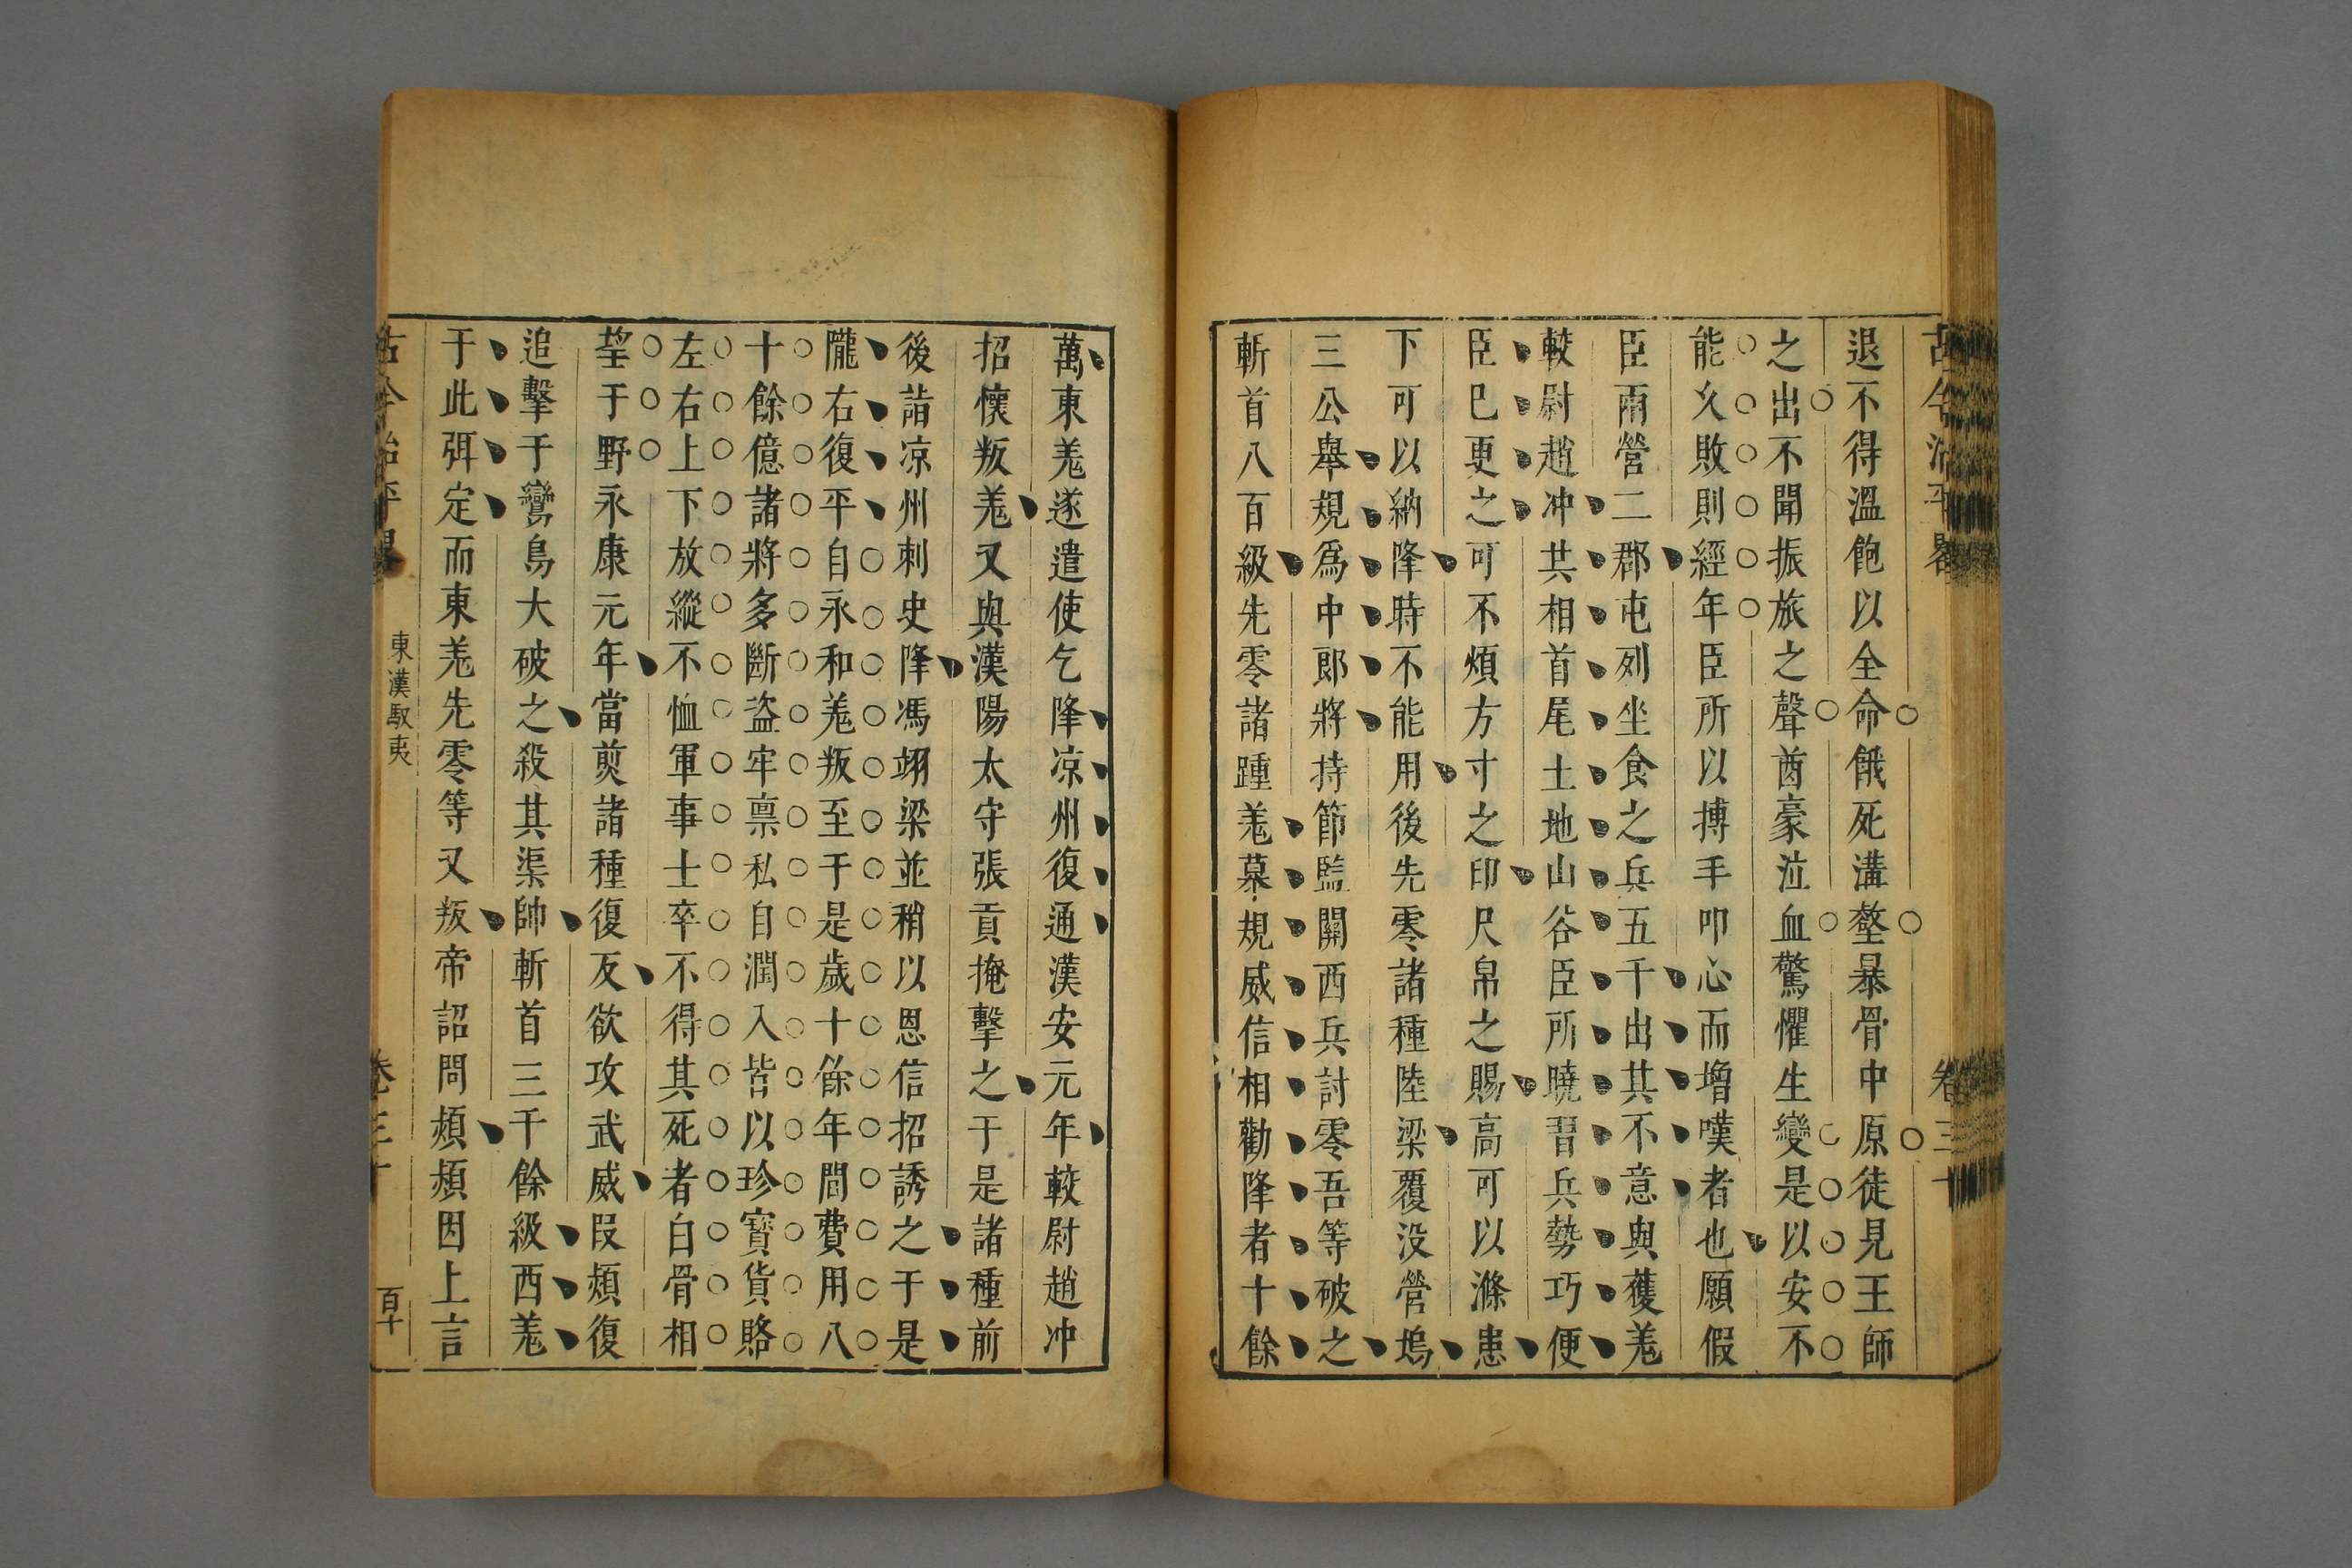 古今治平畧
卷三十
退不得溫飽以全命餓死溝壑暴骨中原徒見王師
之出不聞振旅之聲酋豪泣血驚懼生變是以安不
能久敗則經年臣所以搏手叩心而增嘆者也願假
臣兩營二郡屯列坐食之兵五千出其不意與䕶羗
較尉趙冲共相首尾土地山谷臣所曉習兵勢巧便
臣已更之可不煩方寸之印尺帛之賜高可以滌患
下可以納降時不能用後先零諸種陸梁覆没營塢
三公舉規為中郎將持節監關西兵討零吾等破之
斬首八百級先零諸踵羗慕規威信相勸降者十餘
萬東羗遂遣使乞降凉州復通漢安元年較尉趙冲
招懷叛羗又與漢陽太守張貢掩擊之于是諸種前
後詣凉州刺史降馮翊梁並稍以恩信招誘之于是
隴右復平自永和羗叛至于是歲十餘年間費用八
十餘億諸將多斷盜牢禀私自潤入皆以珍寳貨賂
左右上下放縱不恤軍事士卒不得其死者白骨相
望于野永康元年當煎諸種復反欲攻武威段熲復
追擊于鸞鳥大破之殺其渠帥斬首三千餘級西羗
于此弭定而東羗先零等又叛帝詔問熲熲因上言
古今治平畧
東漢馭夷
卷三十
百十